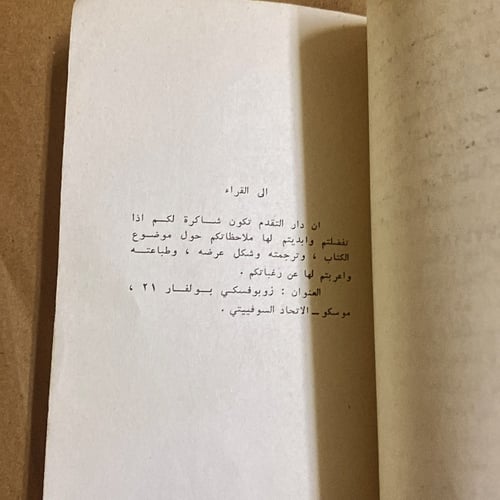 الى القراء
ان دار التقدم تكون شاكرة لكم اذا
تفضلتم وابديتم لها ملاحظاتكم حول موضوع
الكتاب ، وترجمته وشكل عرضه ، وطباعته
واعربتم لها عن رغباتكم .
العنوان : زوبوفسكي بولفار ٢١ ،
موسكو ــ الاتحاد السوفييتي .